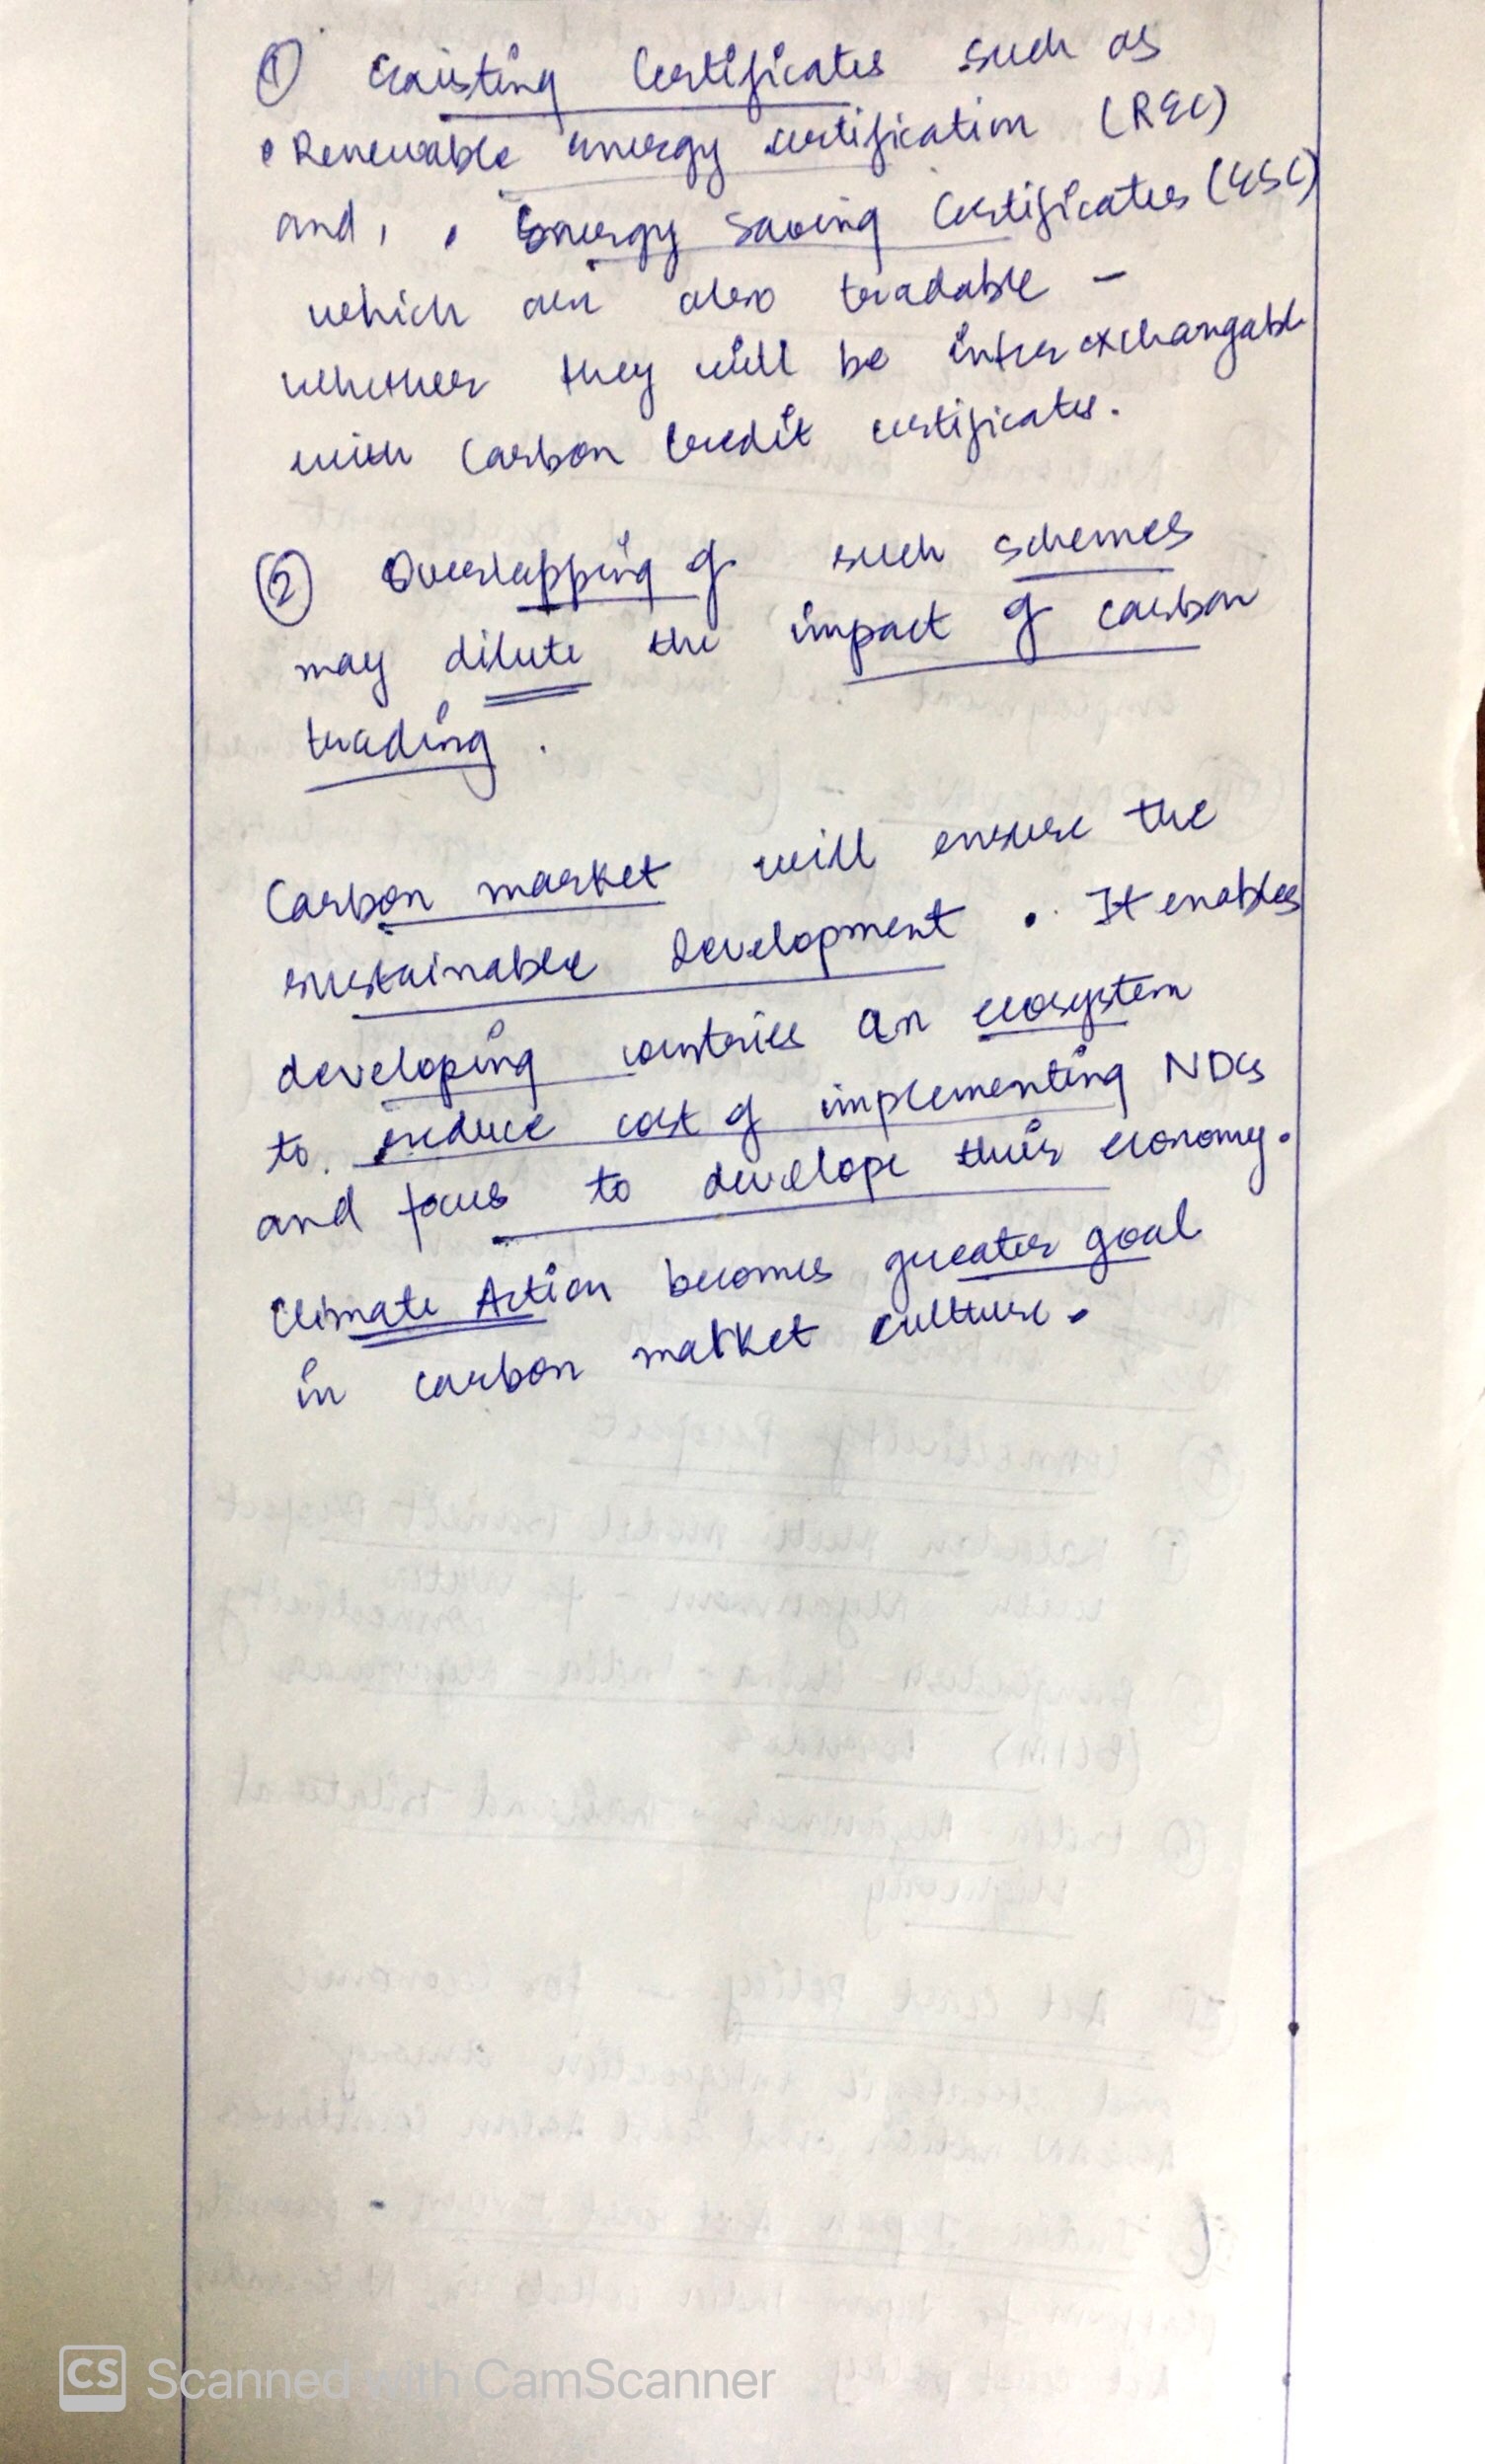 ① Existing Certificates such as
• Renewable energy certification (REC)
and, • Energy Saving Certificates (ESC)
which are also tradable -
whether they will be inter exchangable
with Carbon Credit certificates.
② Overlapping of such schemes
may dilute the impact of carbon
trading.
Carbon market will ensure the
sustainable development. It enables
developing countries an ecosystem
to reduce cost of implementing NDCs
and focus to develope their economy.
Climate Action becomes greater goal
in carbon market culture.
CS Scanned with CamScanner